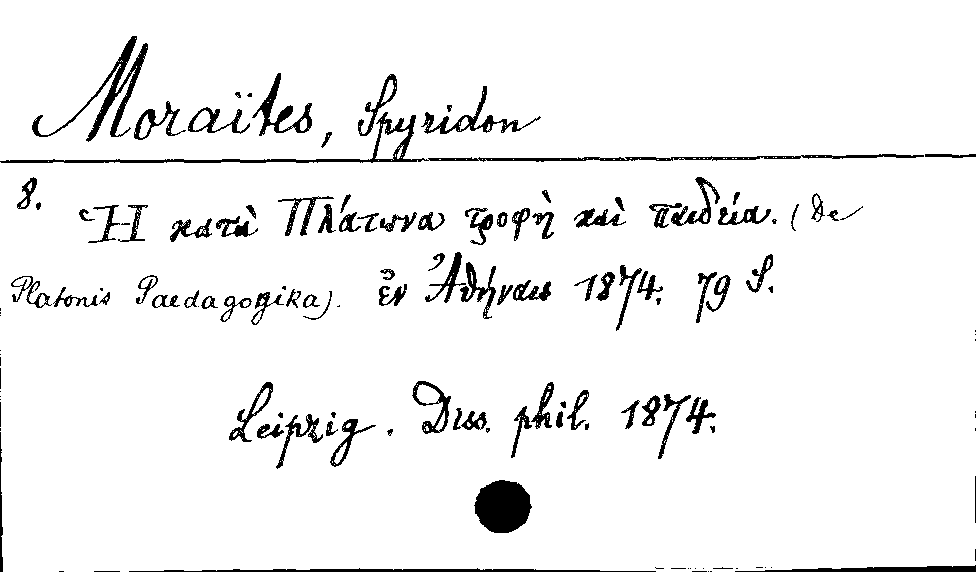 Moraïtes, Spyridon
8.
Ἡ κατὰ Πλάτωνα τροφὴ καὶ παιδεία. (De
Platonis Paedagogika). ἐν Ἀθήναις 1874. 79 S.
Leipzig. Diss. phil. 1874.